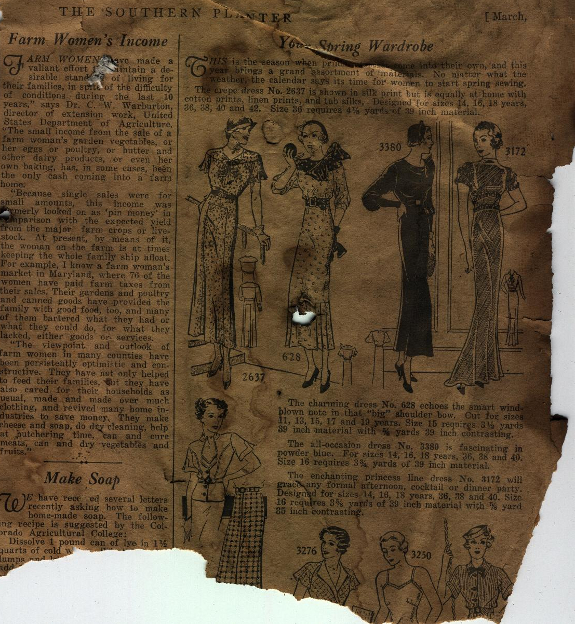 THE SOUTHERN PLANTER
[ March,
Farm Women's Income
FARM WOMEN have made a
valiant effort maintain a de-
sirable standard of living for
their families, in spite of the difficulty
of conditions during the last 10
years," says Dr. C. W. Warburton,
director of extension work, United
States Department of Agriculture.
"The small income from the sale of a
farm woman's garden vegetables, or
her eggs or poultry, or butter and
other dairy products, or even her
own baking, has, in some cases, been
the only cash coming into a farm
home.
"Because single sales were for
small amounts, this income was
formerly looked on as 'pin money' in
comparison with the expected yield
from the major farm crops or live-
stock. At present, by means of it,
the woman on the farm is at times
keeping the whole family ship afloat.
For example, I know a farm woman's
market in Maryland, where 76 of the
women have paid farm taxes from
their sales. Their gardens and poultry
and canned goods have provided the
family with good food, too, and many
of them bartered what they had or
what they could do, for what they
lacked, either goods or services.
"The viewpoint and outlook of
farm women in many counties have
been persistently optimistic and con-
structive. They have not only helped
to feed their families, but they have
also cared for their households as
usual, made and made over much
clothing, and revived many home in-
dustries to save money. They make
cheese and soap, do dry cleaning, help
at butchering time, can and cure
meats, can and dry vegetables and
fruits."
Make Soap
WE have rec ed several letters
recently asking how to make
home-made soap. The follow-
ing recipe is suggested by the Col-
orado Agricultural College:
Dissolve 1 pound can of lye in 1¼
quarts of cold
Your Spring Wardrobe
THIS is the season when into their own, and this
year brings a grand assortment of materials. No matter what the
weather, the calendar says its time for women to start spring sewing.
The crepe dress No. 2637 is shown in silk print but is equally at home with
cotton prints, linen prints, and tub silks. Designed for sizes 14, 16, 18 years,
36, 38, 40 and 42. Size 36 requires 4⅛ yards of 39 inch material.
3380
3172
628
2637
The charming dress No. 628 echoes the smart wind-
blown note in that "big" shoulder bow. Cut for sizes
11, 13, 15, 17 and 19 years. Size 15 requires 3⅞ yards
39 inch material with ⅝ yards 39 inch contrasting.
The all-occasion dress No. 3380 is fascinating in
powder blue. For sizes 14, 16, 18 years, 36, 38 and 40.
Size 16 requires 3¾ yards of 39 inch material.
The enchanting princess line dress No. 3172 will
grace any formal afternoon, cocktail or dinner party.
Designed for sizes 14, 16, 18 years, 36, 38 and 40. Size
16 requires 3⅝ yards of 39 inch material with ⅝ yard
35 inch contrasting.
3276
3250